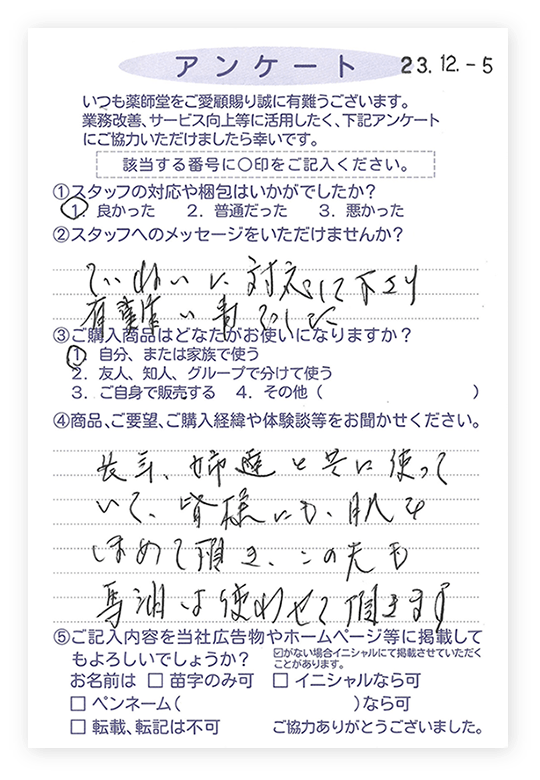 アンケート 23.12.-5
いつも薬師堂をご愛顧賜り誠に有難うございます。
業務改善、サービス向上等に活用したく、下記アンケート
にご協力いただけましたら幸いです。
該当する番号に〇印をご記入ください。
①スタッフの対応や梱包はいかがでしたか?
1. 良かった 2. 普通だった 3. 悪かった
②スタッフへのメッセージをいただけませんか?
ていねいに対応して下さり
有難う
③ご購入商品はどなたがお使いになりますか?
1. 自分、または家族で使う
2. 友人、知人、グループで分けて使う
3. ご自身で販売する 4. その他( )
④商品、ご要望、ご購入経緯や体験談等をお聞かせください。
長年、姉達と共に使って
いて、皆様にも、肌を
ほめて頂き、この先も
馬油は使わせて頂きます
⑤ご記入内容を当社広告物やホームページ等に掲載して
もよろしいでしょうか? ☑がない場合イニシャルにて掲載させていただく
ことがあります。
お名前は □ 苗字のみ可 □ イニシャルなら可
□ ペンネーム( )なら可
□ 転載、転記は不可 ご協力ありがとうございました。